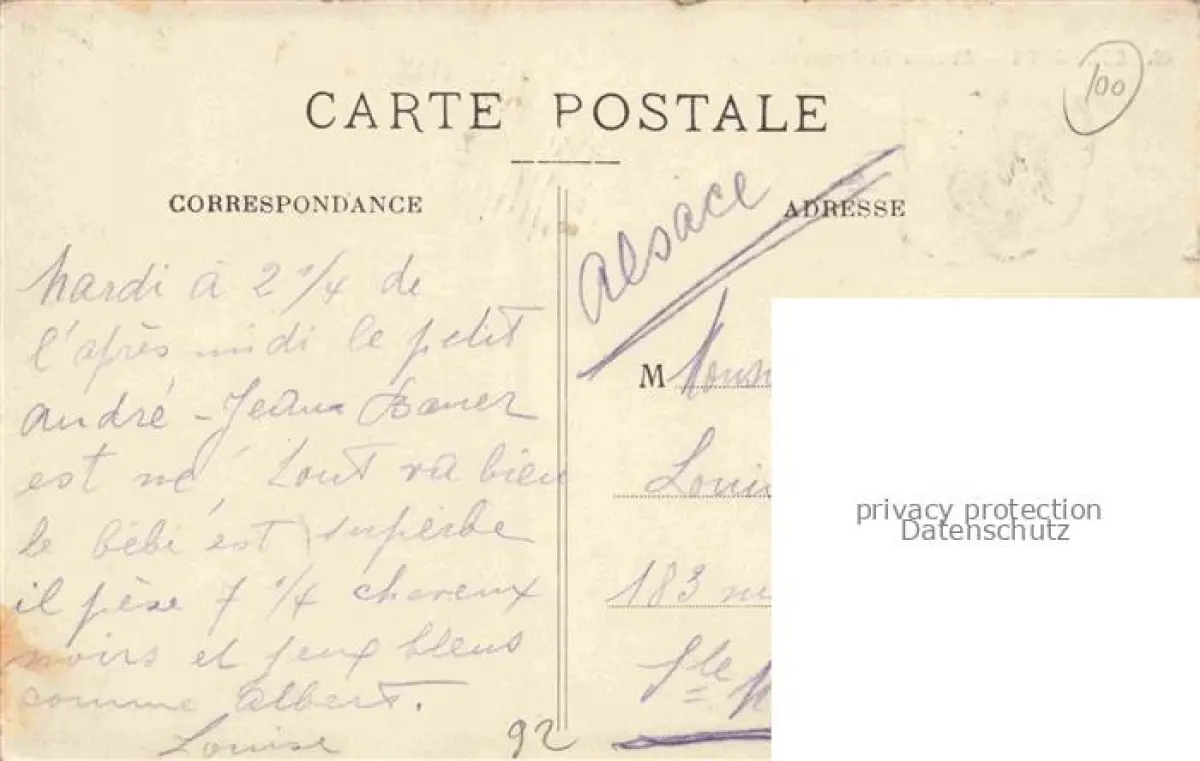 CARTE POSTALE
100
CORRESPONDANCE
ADRESSE
Alsace
Mardi à 2 1/4 de
l'après midi le petit
André - Jean
est né. Tout va bien
le bébé est superbe
il pèse 7 1/4 cheveux
noirs et yeux bleus
comme Albert.
Louise
92
M
183
Ste
privacy protection
Datenschutz